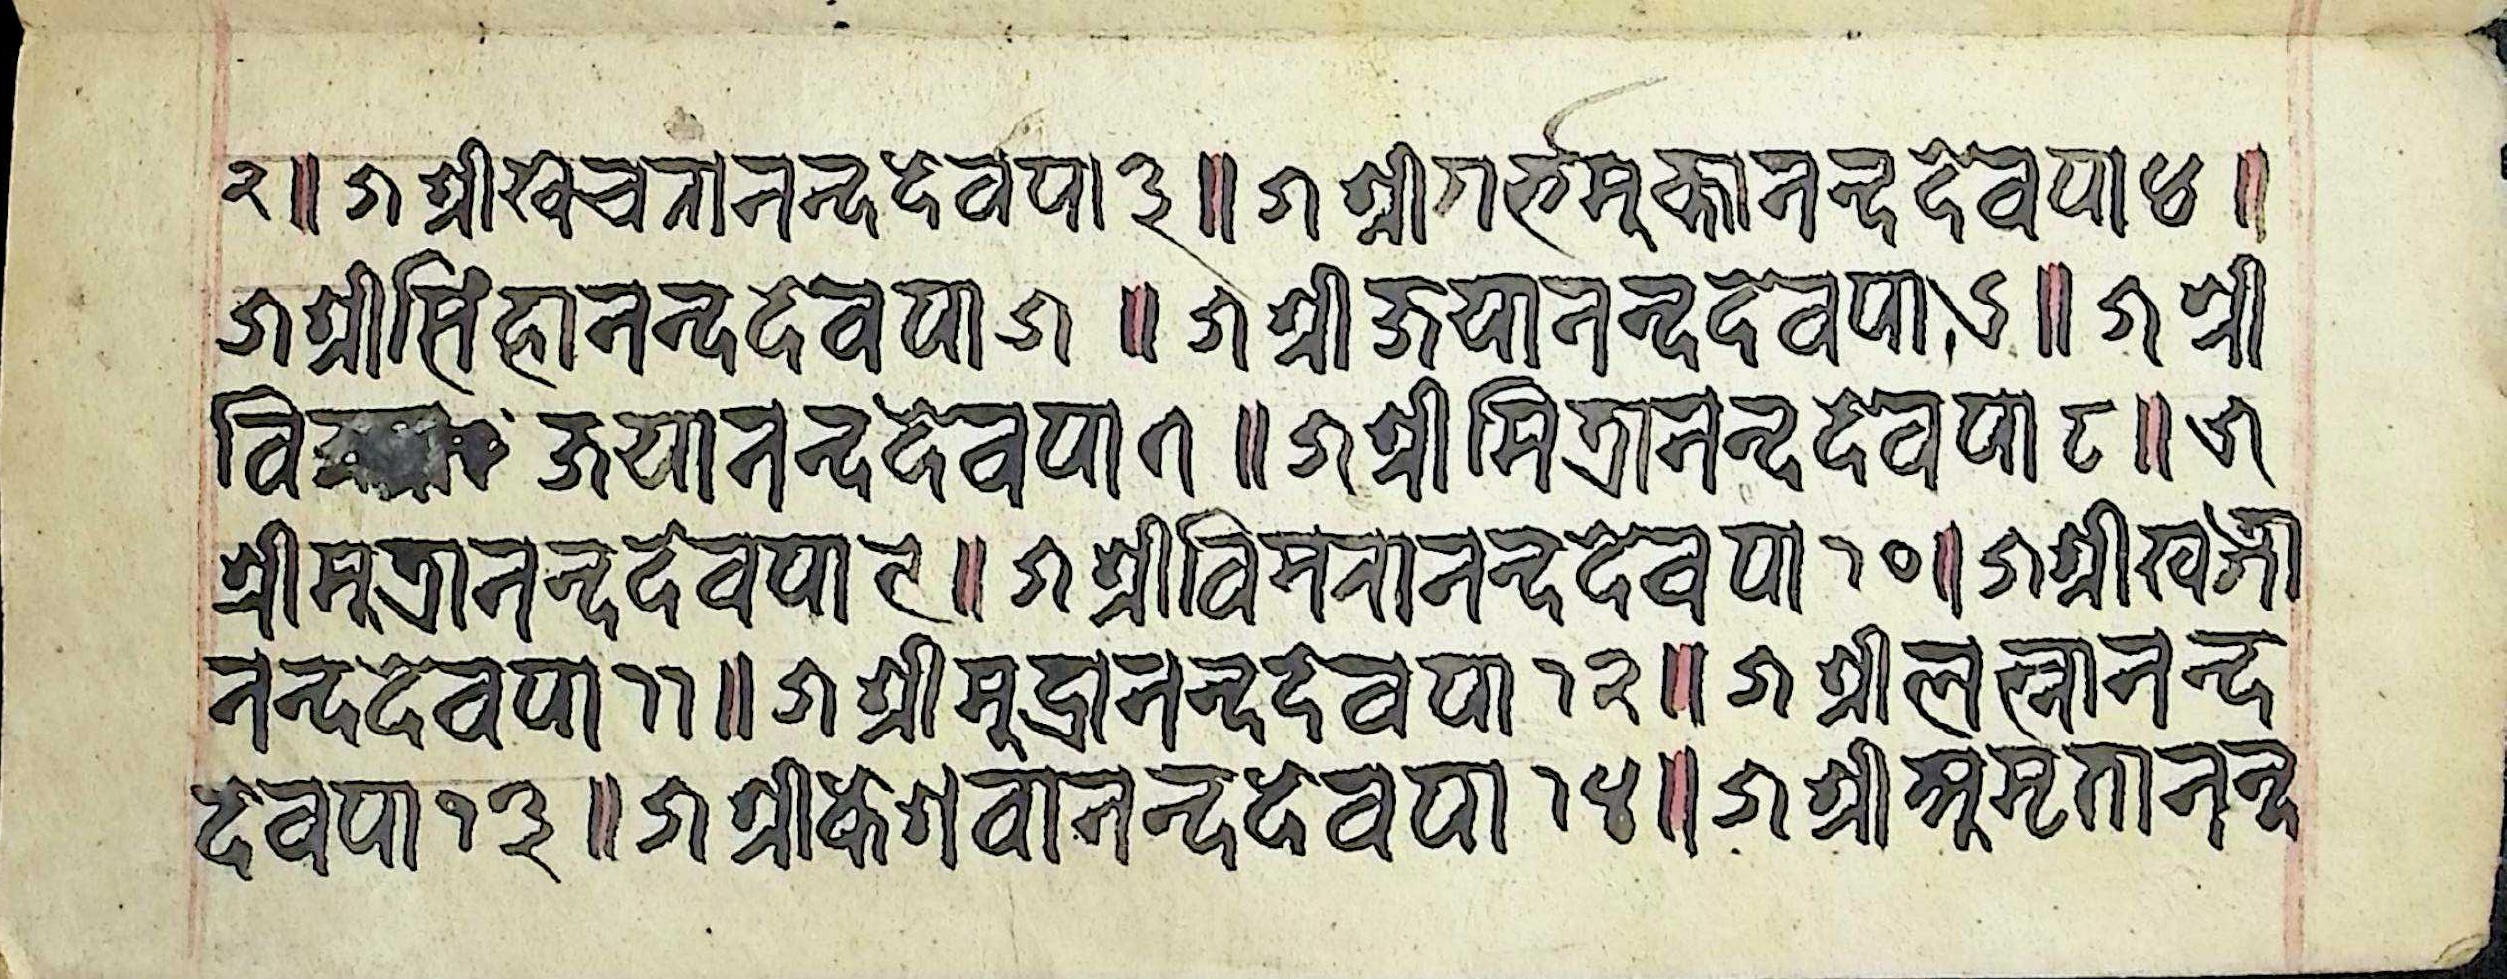 २॥ ५ श्रीखेचरानन्ददेवपा ३॥ ५ श्रीगर्भमुक्तानन्ददेवपा ४॥
५ श्रीसिंहानन्ददेवपा ५ ॥ ५ श्रीजयानन्ददेवपा ६॥ ५ श्री
विजयानन्ददेवपा ७॥ ५ श्रीमित्रानन्ददेवपा ८॥ ५
श्रीमुत्रानन्ददेवपा ९॥ ५ श्रीविमरानन्ददेवपा १०॥ ५ श्री
नन्ददेवपा ११॥ ५ श्रीमुद्रानन्ददेवपा १२॥ ५ श्रीलत्नानन्द
देवपा १३॥ ५ श्रीकेशवानन्ददेवपा १४॥ ५ श्रीअमृतानन्द